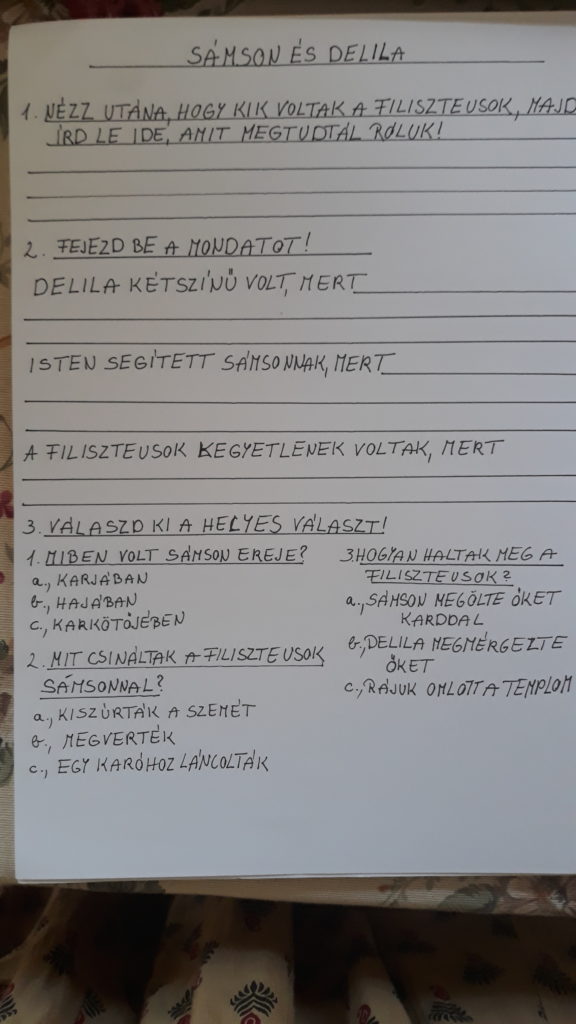 SÁMSON ÉS DELILA
1. NÉZZ UTÁNA, HOGY KIK VOLTAK A FILISZTEUSOK, MAJD
ÍRD LE IDE, AMIT MEGTUDTÁL RÓLUK!
2. FEJEZD BE A MONDATOT!
DELILA KÉTSZÍNŰ VOLT, MERT
ISTEN SEGÍTETT SÁMSONNAK, MERT
A FILISZTEUSOK KEGYETLENEK VOLTAK, MERT
3. VÁLASZD KI A HELYES VÁLASZT!
1. MIBEN VOLT SÁMSON EREJE?
a., KARJÁBAN
b., HAJÁBAN
c., KARKÖTŐJÉBEN
2. MIT CSINÁLTAK A FILISZTEUSOK
SÁMSONNAL?
a., KISZÚRTÁK A SZEMÉT
b., MEGVERTÉK
c., EGY KARÓHOZ LÁNCOLTÁK
3. HOGYAN HALTAK MEG A
FILISZTEUSOK?
a., SÁMSON MEGÖLTE ŐKET
KARDDAL
b., DELILA MEGMÉRGEZTE
ŐKET
c., RÁJUK OMLOTT A TEMPLOM